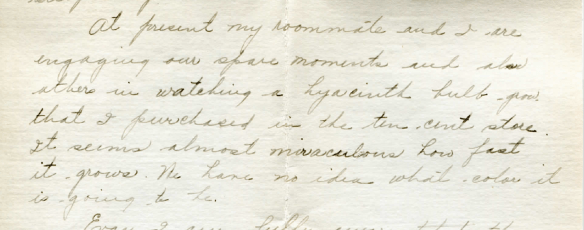 At present my roommate and I are
engaging our spare moments and also
others in watching a hyacinth bulb grow
that I purchased in the ten cent store.
It seems almost miraculous how fast
it grows. We have no idea what color it
is going to be.